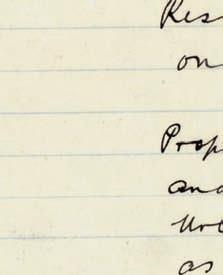 Res
on
Prop
and
as